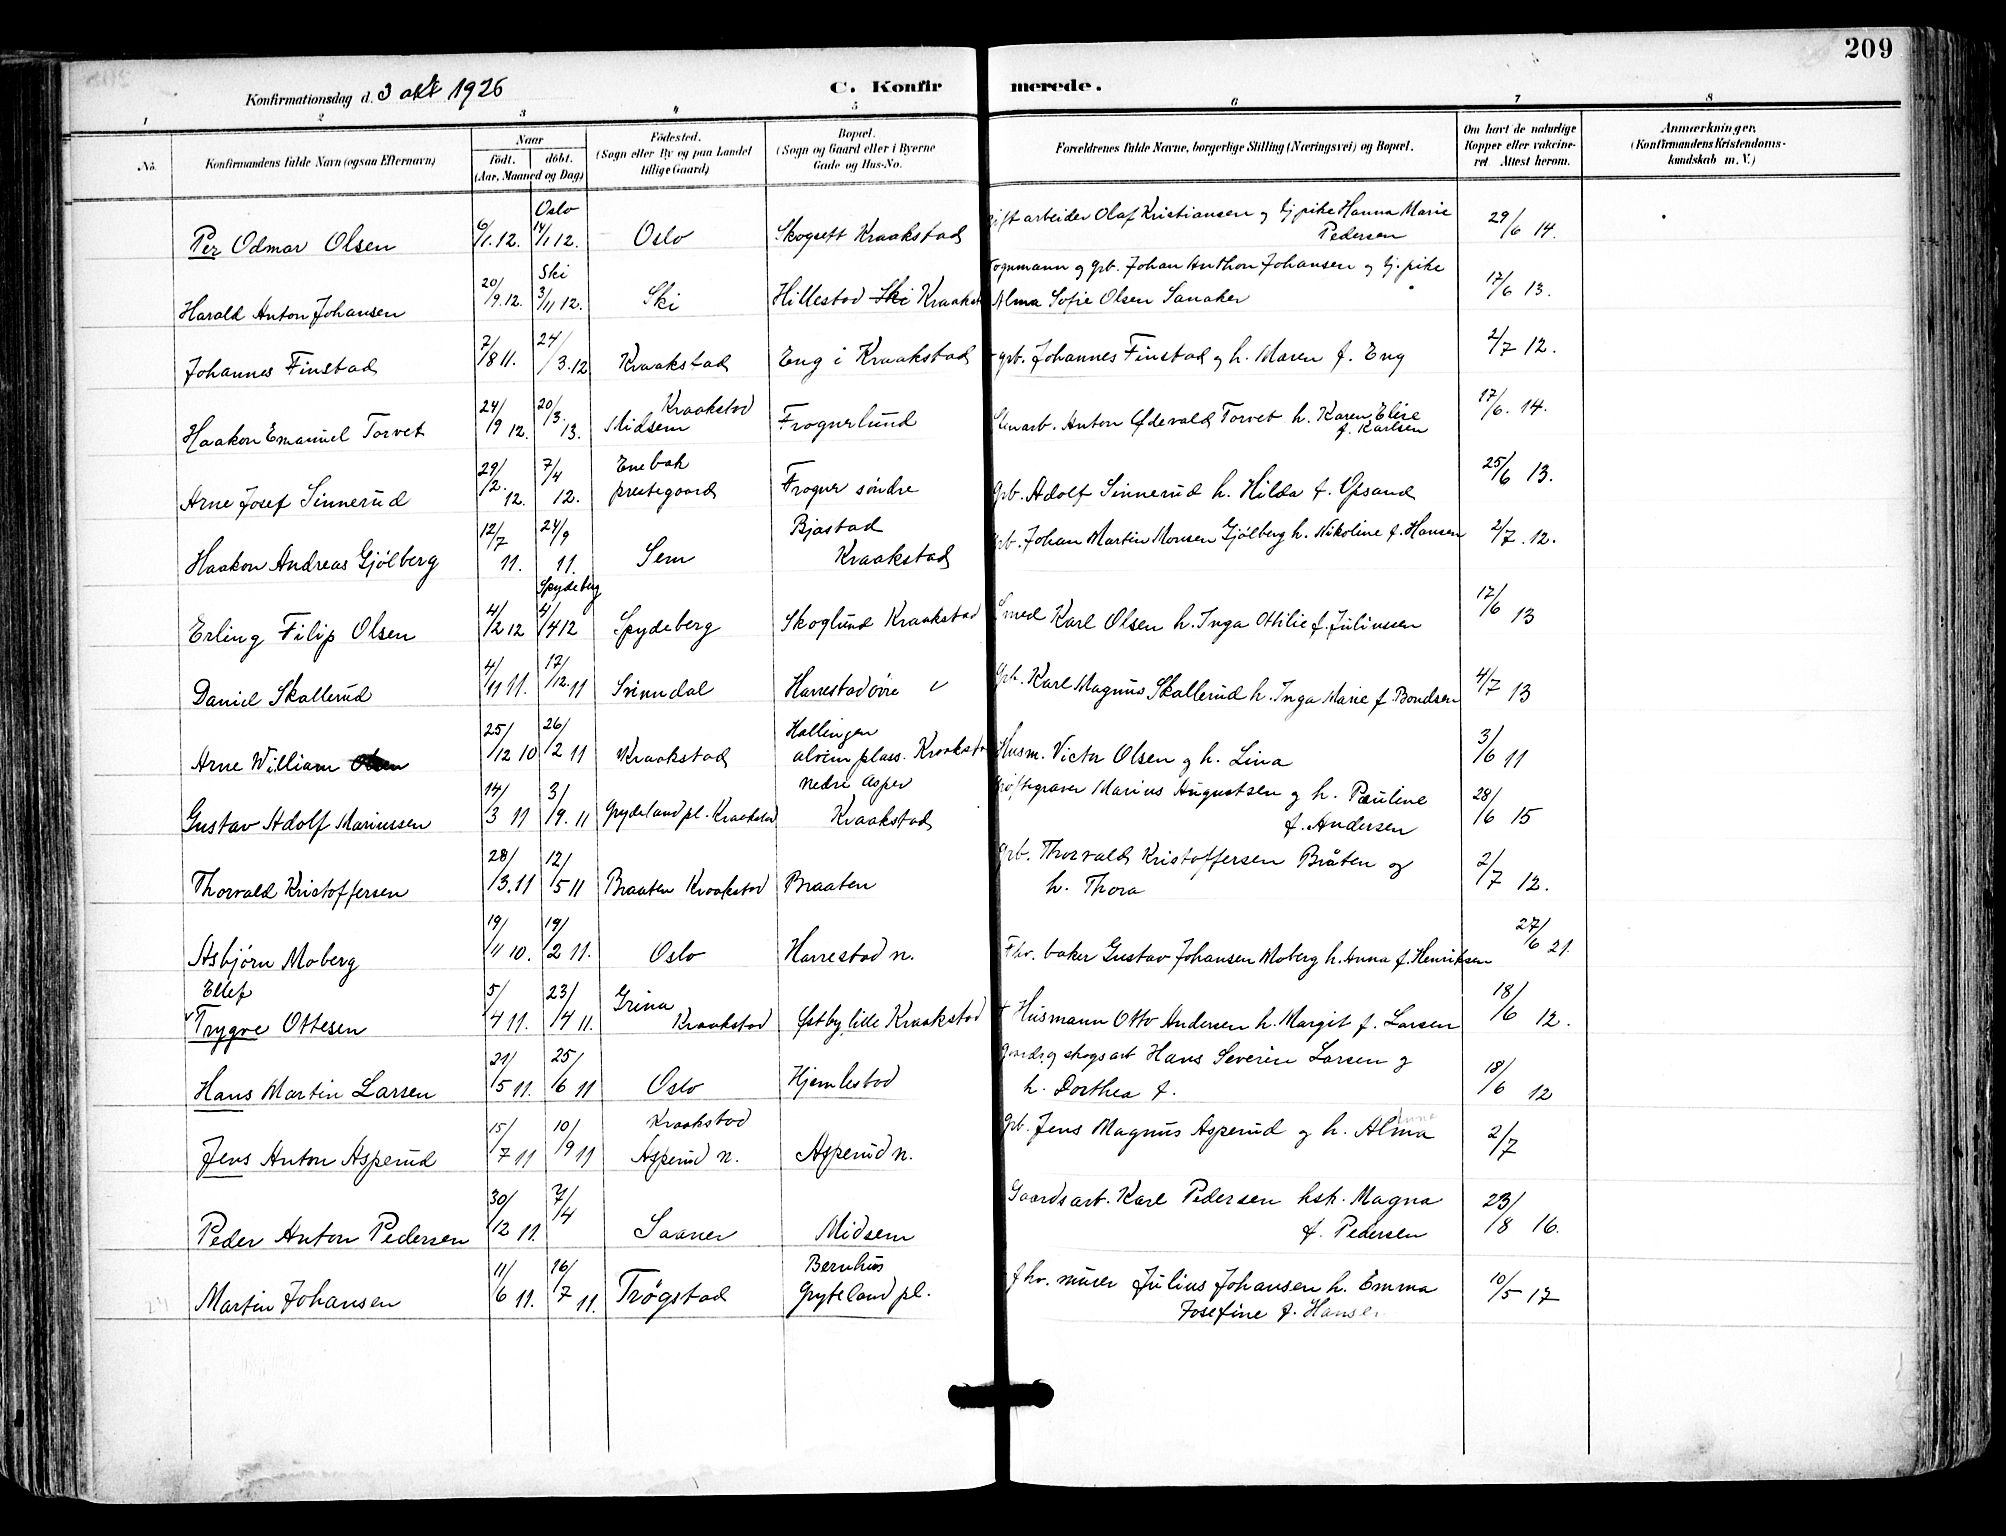 209
Konfirmationsdag d. 3 okt 1926 C. Konfir merede.
1 2 3 4 5 6 7 8
No. Konfirmandens fulde Navn (ogsaa Efternavn) Naar födt. döbt. (Aar, Maaned og Dag) Födested. (Sogn eller By og paa Landet tillige Gaard) Bopæl. (Sogn og Gaard eller i Byerne Gade og Hus-No. Forældrenes fulde Navne, borgerlige Stilling (Næringsvei) og Bopæl. Om havt de naturlige Kopper eller vaccineret Attest herom. Anmærkninger. (Konfirmandens Kristendomskundskab m. V.)
Per Odmar Olsen 6/1. 12. Oslo 14/1 12. Oslo Skogsett Kraakstad arbeider Olaf Kristiansen og Hanna Marie Pedersen 29/6 14.
Harald Anton Johansen 20/9. 12. Ski 3/11 12. Ski Hillestad Ski Kraakst og grb. Johan Anthon Johansen og pike Alma Sofie Olsen Sanaker 17/6 13.
Johannes Finstad 7/8 11. 24/3. 12 Kraakstad Eng i Kraakstad grb. Johannes Finstad og h. Maren f. Eng 2/7 12.
Haakon Emanuel Torvet 24/9 12. 20/3. 13. Kraakstad Midsem Frognerlund Anton Ødevald Torvet h. Karen Elise f. Karlsen 17/6. 14.
Arne Josef Sinnerud 29/2. 12. 7/4 12. Enebak prestegaard Frogner söndre Grb. Adolf Sinnerud h. Hilda f. Opsand 25/6 13.
Haakon Andreas Gjölberg 12/7 11. 24/9 11. Sem Bjastad Kraakstad Grb. Johan Martin Monsen Gjölberg h. Nikoline f. Hansen 2/7. 12.
Erling Filip Olsen 4/2 12 Spydeberg 4/4 12 Spydeberg Skoglund Kraakstad Smed Karl Olsen h. Inga Othilie f. Juliussen 17/6 13
Daniel Skallerud 4/11 11. 17/12. 11 Svinndal Harrestad övre Grb. Karl Magnus Skallerud h. Inga Marie f. Bondsen 4/7 13
Arne William Olsen 25/12 10 26/2 11 Kraakstad Hallingen alvim plass. Kraakst Husm. Victor Olsen og h. Lina 3/6 11
Gustav Adolf Mariussen 14/3 11 3/9. 11 Grydeland pl. Kraakstad nedre Asper Kraakstad Marius Augustsen og h. Pauline f. Andersen 28/6 15
Thorvald Kristoffersen 28/3. 11 12/5 11 Braaten Kraakstad Braaten Grb. Thorvald Kristoffersen Bråten og h. Thora 2/7 12.
Asbjörn Moberg 19/4 10. 19/2 11. Oslo Harrestad n. Fhv. baker Gustav Johansen Moberg h. Anna f. Henriksen 27/6 21.
Ellef
Trygve Ottesen 5/4 11. 23/4 11. Grina Kraakstad Østby lille Kraakstad + Husmann Otto Andersen h. Margit f. Larsen 18/6 12.
Hans Martin Larsen 21/5 11. 25/6 11 Oslo Hjemlestad Gaards og skogsarb Hans Severin Larsen og h. Dorthea f. 18/6 12
Jens Anton Asperud 15/7 11 10/9 11 Kraakstad Asperud n. Asperud n. Grb. Jens Magnus Asperud og h. Alma 2/7
Peder Anton Pedersen 30/12 11. 7/4 Saaner Midsem Gaardsarb. Karl Pedersen hsk. Magna f. Pedersen 23/8 16.
Martin Johansen 11/6 11. 16/7 11. Trögstad Bernhus Gryteland pl. fhv. murer Julius Johansen h. Emma Josefine f. Hansen 10/5 17